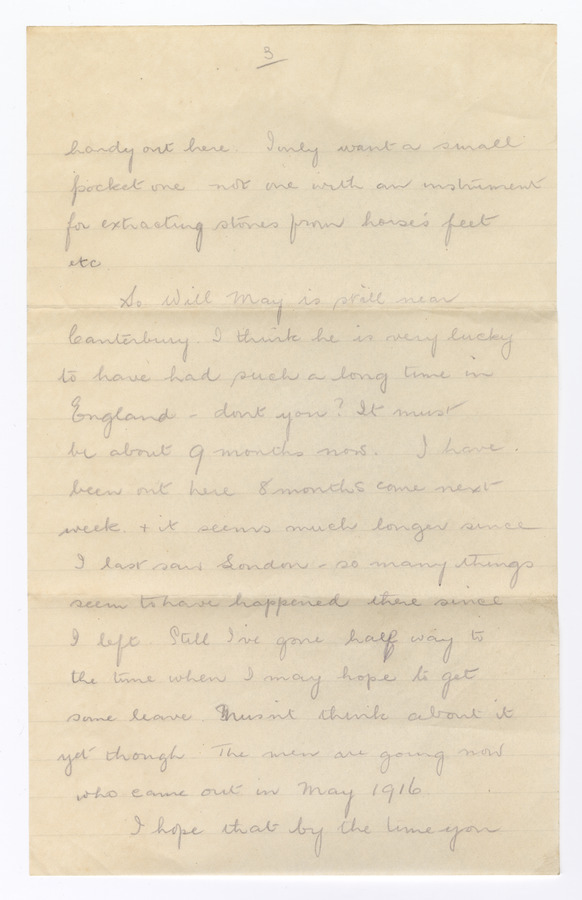 3
handy out here. I only want a small
pocket one not one with an instrument
for extracting stones from horse's feet
etc.
So Will May is still near
Canterbury. I think he is very lucky
to have had such a long time in
England - dont you? It must
be about 9 months now. I have
been out here 8 months come next
week. + it seems much longer since
I last saw London - so many things
seem to have happened there since
I left. Still I've gone half way to
the time when I may hope to get
some leave. Musnt think about it
yet though. The men are going now
who came out in May 1916.
I hope that by the time you